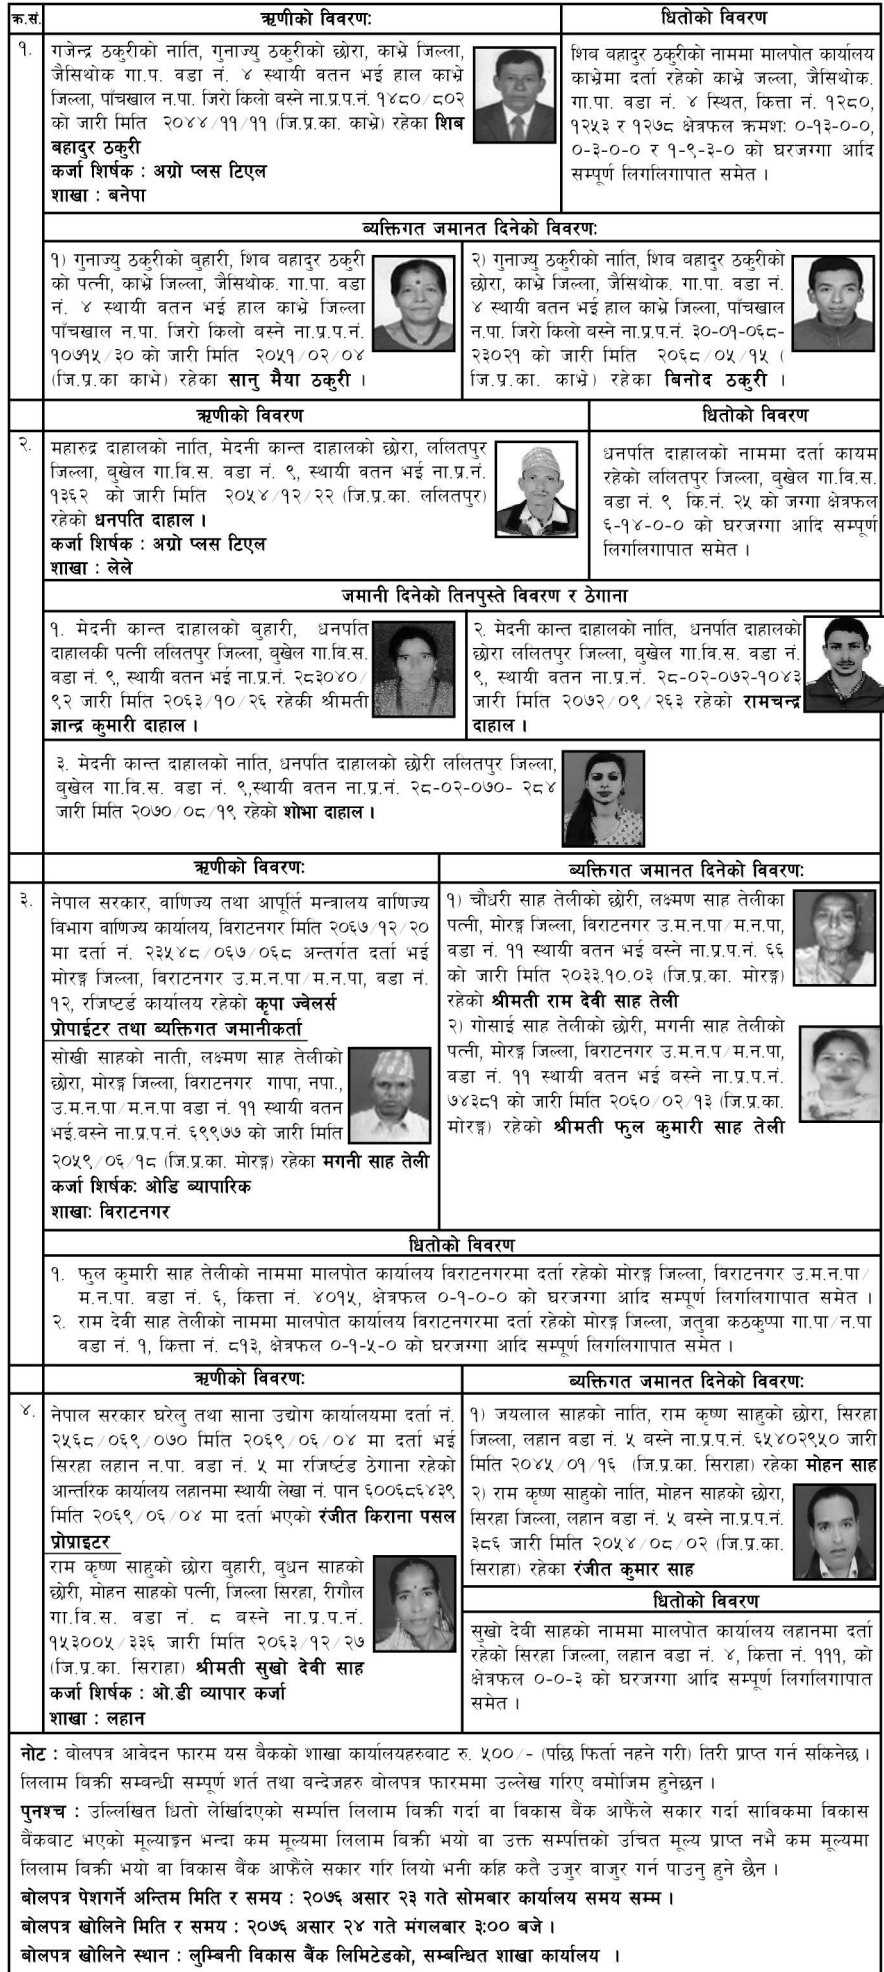 क्र.सं. ऋणीको विवरण: धितोको विवरण
१. गजेन्द्र ठकुरीको नाति, गुनाज्यु ठकुरीको छोरा, काभ्रे जिल्ला,
जैसिथोक गा.प. वडा नं. ४ स्थायी वतन भई हाल काभ्रे
जिल्ला, पाँचखाल न.पा. जिरो किलो वस्ने ना.प्र.प.नं. १४८०/८०२
को जारी मिति २०४४/११/११ (जि.प्र.का. काभ्रे) रहेका शिब
बहादुर ठकुरी
कर्जा शिर्षक : अग्रो प्लस टिएल
शाखा : बनेपा
शिव बहादुर ठकुरीको नाममा मालपोत कार्यालय
काभ्रेमा दर्ता रहेको काभ्रे जल्ला, जैसिथोक.
गा.पा. वडा नं. ४ स्थित, कित्ता नं. १२८०,
१२५३ र १२७८ क्षेत्रफल क्रमश: ०-१३-०-०,
०-३-०-० र १-९-३-० को घरजग्गा आदि
सम्पूर्ण लिगलिगापात समेत ।
ब्यक्तिगत जमानत दिनेको विवरण:
१) गुनाज्यु ठकुरीको बुहारी, शिव बहादुर ठकुरी
को पत्नी, काभ्रे जिल्ला, जैसिथोक. गा.पा. वडा
नं. ४ स्थायी वतन भई हाल काभ्रे जिल्ला
पाँचखाल न.पा. जिरो किलो वस्ने ना.प्र.प.नं.
१०७१५/३० को जारी मिति २०५१/०२/०४
(जि.प्र.का काभ्रे) रहेका सानु मैया ठकुरी ।
२) गुनाज्यु ठकुरीको नाति, शिव बहादुर ठकुरीको
छोरा, काभ्रे जिल्ला, जैसिथोक. गा.पा. वडा नं.
४ स्थायी वतन भई हाल काभ्रे जिल्ला, पाँचखाल
न.पा. जिरो किलो वस्ने ना.प्र.प.नं. ३०-०१-०६८-
२३०२१ को जारी मिति २०६८/०५/१५ (
जि.प्र.का. काभ्रे) रहेका बिनोद ठकुरी ।
ऋणीको विवरण धितोको विवरण
२. महारुद्र दाहालको नाति, मेदनी कान्त दाहालको छोरा, ललितपुर
जिल्ला, बुखेल गा.वि.स. वडा नं. ९, स्थायी वतन भई ना.प्र.नं.
१३६२ को जारी मिति २०५४/१२/२२ (जि.प्र.का. ललितपुर)
रहेको धनपति दाहाल ।
कर्जा शिर्षक : अग्रो प्लस टिएल
शाखा : लेले
धनपति दाहालको नाममा दर्ता कायम
रहेको ललितपुर जिल्ला, बुखेल गा.वि.स.
वडा नं. ९ कि.नं. २५ को जग्गा क्षेत्रफल
६-१४-०-० को घरजग्गा आदि सम्पूर्ण
लिगलिगापात समेत ।
जमानी दिनेको तिनपुस्ते विवरण र ठेगाना
१. मेदनी कान्त दाहालको बुहारी, धनपति
दाहालकी पत्नी ललितपुर जिल्ला, बुखेल गा.वि.स.
वडा नं. ९, स्थायी वतन भई ना.प्र.नं. २८३०४०/
९२ जारी मिति २०६३/१०/२६ रहेकी श्रीमती
ज्ञान्द्र कुमारी दाहाल ।
२. मेदनी कान्त दाहालको नाति, धनपति दाहालको
छोरा ललितपुर जिल्ला, बुखेल गा.वि.स. वडा नं.
९, स्थायी वतन ना.प्र.नं. २८-०२-०७२-१०४३
जारी मिति २०७२/०९/२६३ रहेको रामचन्द्र
दाहाल ।
३. मेदनी कान्त दाहालको नाति, धनपति दाहालको छोरी ललितपुर जिल्ला,
बुखेल गा.वि.स. वडा नं. ९,स्थायी वतन ना.प्र.नं. २८-०२-०७०- २८४
जारी मिति २०७०/०८/१९ रहेको शोभा दाहाल ।
ऋणीको विवरण: ब्यक्तिगत जमानत दिनेको विवरण:
३. नेपाल सरकार, वाणिज्य तथा आपूर्ति मन्त्रालय वाणिज्य
विभाग वाणिज्य कार्यालय, विराटनगर मिति २०६७/१२/२०
मा दर्ता नं. २३५४८/०६७/०६८ अन्तर्गत दर्ता भई
मोरङ्ग जिल्ला, विराटनगर उ.म.न.पा/म.न.पा, वडा नं.
१२, रजिष्टर्ड कार्यालय रहेको कृपा ज्वेलर्स
प्रोपाईटर तथा ब्यक्तिगत जमानीकर्ता
सोखी साहको नाती, लक्ष्मण साह तेलीको
छोरा, मोरङ्ग जिल्ला, विराटनगर गापा, नपा.,
उ.म.न.पा/म.न.पा वडा नं. ११ स्थायी वतन
भई.वस्ने ना.प्र.प.नं. ६९९७७ को जारी मिति
२०५९/०६/१८ (जि.प्र.का. मोरङ्ग) रहेका मगनी साह तेली
कर्जा शिर्षक: ओडि ब्यापारिक
शाखा: विराटनगर
१) चौधरी साह तेलीको छोरी, लक्ष्मण साह तेलीका
पत्नी, मोरङ्ग जिल्ला, विराटनगर उ.म.न.पा/म.न.पा,
वडा नं. ११ स्थायी वतन भई वस्ने ना.प्र.प.नं. ६६
को जारी मिति २०३३.१०.०३ (जि.प्र.का. मोरङ्ग)
रहेको श्रीमती राम देवी साह तेली
२) गोसाई साह तेलीको छोरी, मगनी साह तेलीको
पत्नी, मोरङ्ग जिल्ला, विराटनगर उ.म.न.प/म.न.पा,
वडा नं. ११ स्थायी वतन भई वस्ने ना.प्र.प.नं.
७४३८१ को जारी मिति २०६०/०२/१३ (जि.प्र.का.
मोरङ्ग) रहेको श्रीमती फुल कुमारी साह तेली
धितोको विवरण
१. फुल कुमारी साह तेलीको नाममा मालपोत कार्यालय विराटनगरमा दर्ता रहेको मोरङ्ग जिल्ला, विराटनगर उ.म.न.पा/
म.न.पा. वडा नं. ६, कित्ता नं. ४०१५, क्षेत्रफल ०-१-०-० को घरजग्गा आदि सम्पूर्ण लिगलिगापात समेत ।
२. राम देवी साह तेलीको नाममा मालपोत कार्यालय विराटनगरमा दर्ता रहेको मोरङ्ग जिल्ला, जतुवा कठकुप्पा गा.पा/न.पा
वडा नं. १, कित्ता नं. ८१३, क्षेत्रफल ०-१-५-० को घरजग्गा आदि सम्पूर्ण लिगलिगापात समेत ।
ऋणीको विवरण: ब्यक्तिगत जमानत दिनेको विवरण:
४. नेपाल सरकार घरेलु तथा साना उद्योग कार्यालयमा दर्ता नं.
२५६८/०६९/०७० मिति २०६९/०६/०४ मा दर्ता भई
सिरहा लहान न.पा. वडा नं. ५ मा रजिर्ष्टड ठेगाना रहेको
आन्तरिक कार्यालय लहानमा स्थायी लेखा नं. पान ६००६८६४३९
मिति २०६९/०६/०४ मा दर्ता भएको रंजीत किराना पसल
प्रोप्राइटर
राम कृष्ण साहुको छोरा बुहारी, बुधन साहको
छोरी, मोहन साहको पत्नी, जिल्ला सिरहा, रीगौल
गा.वि.स. वडा नं. ८ वस्ने ना.प्र.प.नं.
१५३००५/३३६ जारी मिति २०६३/१२/२७
(जि.प्र.का. सिराहा) श्रीमती सुखो देवी साह
कर्जा शिर्षक : ओ.डी व्यापार कर्जा
शाखा : लहान
१) जयलाल साहको नाति, राम कृष्ण साहुको छोरा, सिरहा
जिल्ला, लहान वडा नं. ५ वस्ने ना.प्र.प.नं. ६५४०२९५० जारी
मिति २०४५/०१/१६ (जि.प्र.का. सिराहा) रहेका मोहन साह
२) राम कृष्ण साहुको नाति, मोहन साहको छोरा,
सिरहा जिल्ला, लहान वडा नं. ५ वस्ने ना.प्र.प.नं.
३८६ जारी मिति २०५४/०८/०२ (जि.प्र.का.
सिराहा) रहेका रंजीत कुमार साह
धितोको विवरण
सुखो देवी साहको नाममा मालपोत कार्यालय लहानमा दर्ता
रहेको सिरहा जिल्ला, लहान वडा नं. ४, कित्ता नं. १११, को
क्षेत्रफल ०-०-३ को घरजग्गा आदि सम्पूर्ण लिगलिगापात
समेत ।
नोट : बोलपत्र आवेदन फारम यस बैकको शाखा कार्यालयहरुबाट रु. ५००/- (पछि फिर्ता नहने गरी) तिरी प्राप्त गर्न सकिनेछ ।
लिलाम बिक्री सम्बन्धी सम्पूर्ण शर्त तथा बन्देजहरु बोलपत्र फारममा उल्लेख गरिए बमोजिम हुनेछन ।
पुनश्च : उल्लिखित धितो लेखिदिएको सम्पत्ति लिलाम बिक्री गर्दा वा विकास बैंक आफैंले सकार गर्दा साविकमा विकास
बैंकबाट भएको मूल्याङ्कन भन्दा कम मूल्यमा लिलाम बिक्री भयो वा उक्त सम्पत्तिको उचित मूल्य प्राप्त नभै कम मूल्यमा
लिलाम बिक्री भयो वा विकास बैंक आफैंले सकार गरि लियो भनी कहि कतै उजुर वाजुर गर्न पाउनु हुने छैन ।
बोलपत्र पेशगर्ने अन्तिम मिति र समय : २०७६ असार २३ गते सोमबार कार्यालय समय सम्म ।
बोलपत्र खोलिने मिति र समय : २०७६ असार २४ गते मंगलबार ३:०० बजे ।
बोलपत्र खोलिने स्थान : लुम्बिनी विकास बैंक लिमिटेडको, सम्बन्धित शाखा कार्यालय ।